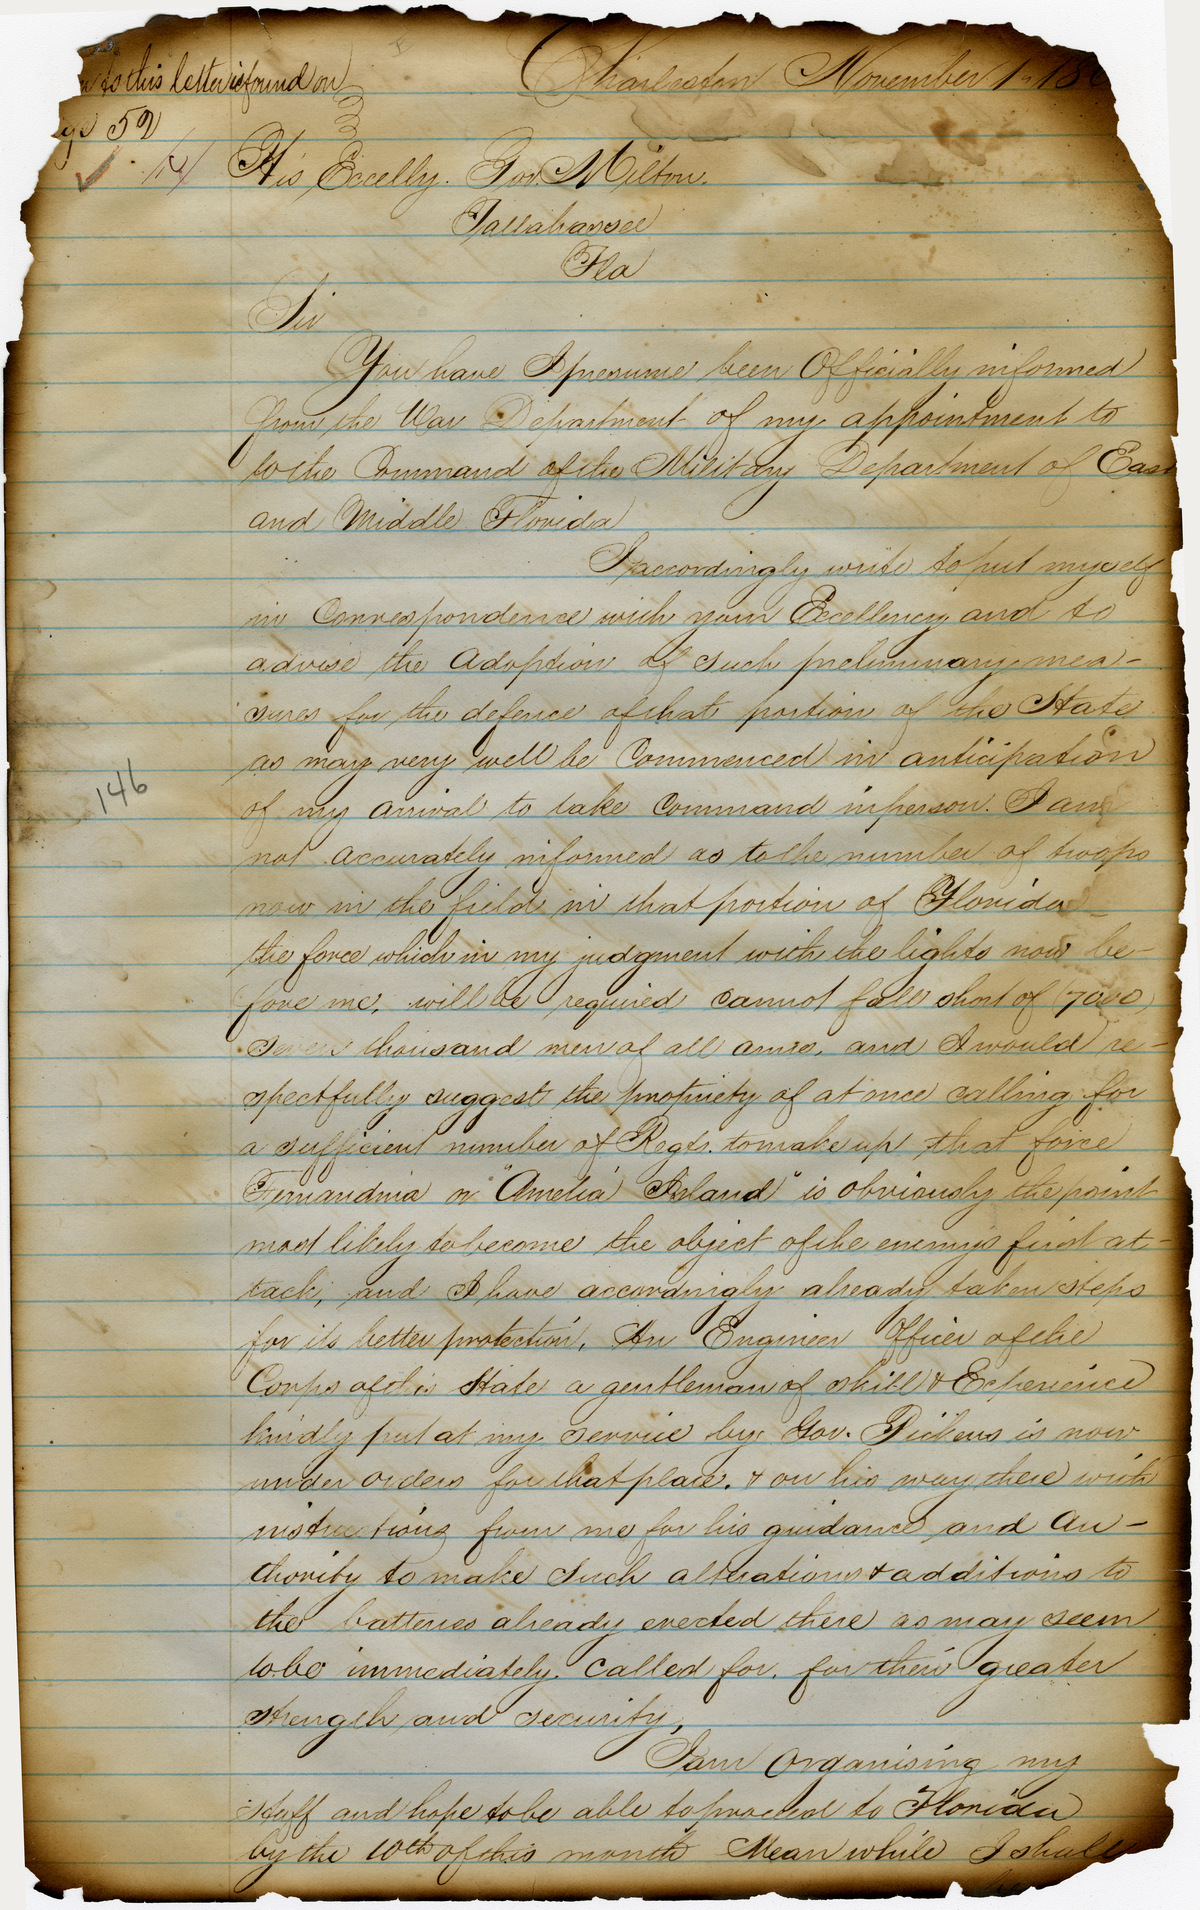 to this letter is found on
Charleston November 1. 18
52
His Excelly. Gov. Milton.
Tallahassee
Fla
Sir
You have I presume been Officially informed
from the War Department of my appointment to
to the Command of the Military Department of East
and Middle Florida
I accordingly write to put myself
in Correspondence with your Excellency and to
advise the Adoption of such preliminary mea-
sures for the defence of that portion of the State
as may very well be Commenced in anticipation
146
of my arrival to take Command in person. I am
not accurately informed as to the number of troops
now in the field in that portion of Florida -
the force which in my judgment with the lights now be-
fore me, will be required cannot fall short of (7000)
seven thousand men of all arms, and I would re-
spectfully suggest the propriety of at once calling for
a sufficient number of Regts. to make up that force
Fernandina or "Amelia Island" is obviously the point
most likely to become the object of the enemys first at-
tack, and I have accordingly already taken steps
for its better protection, An Engineer Officer of the
Corps of this State a gentleman of skill & Experience
kindly put at my service by Gov. Pickens is now
under orders for that place. & on his way there with
instructions from me for his guidance and Au-
thority to make such alterations & additions to
the batteries already erected there as may seem
to be immediately. called for. for their greater
strength and security,
I am organising my
staff and hope to be able to proceed to Florida
by the 10th of this month Mean while I shall